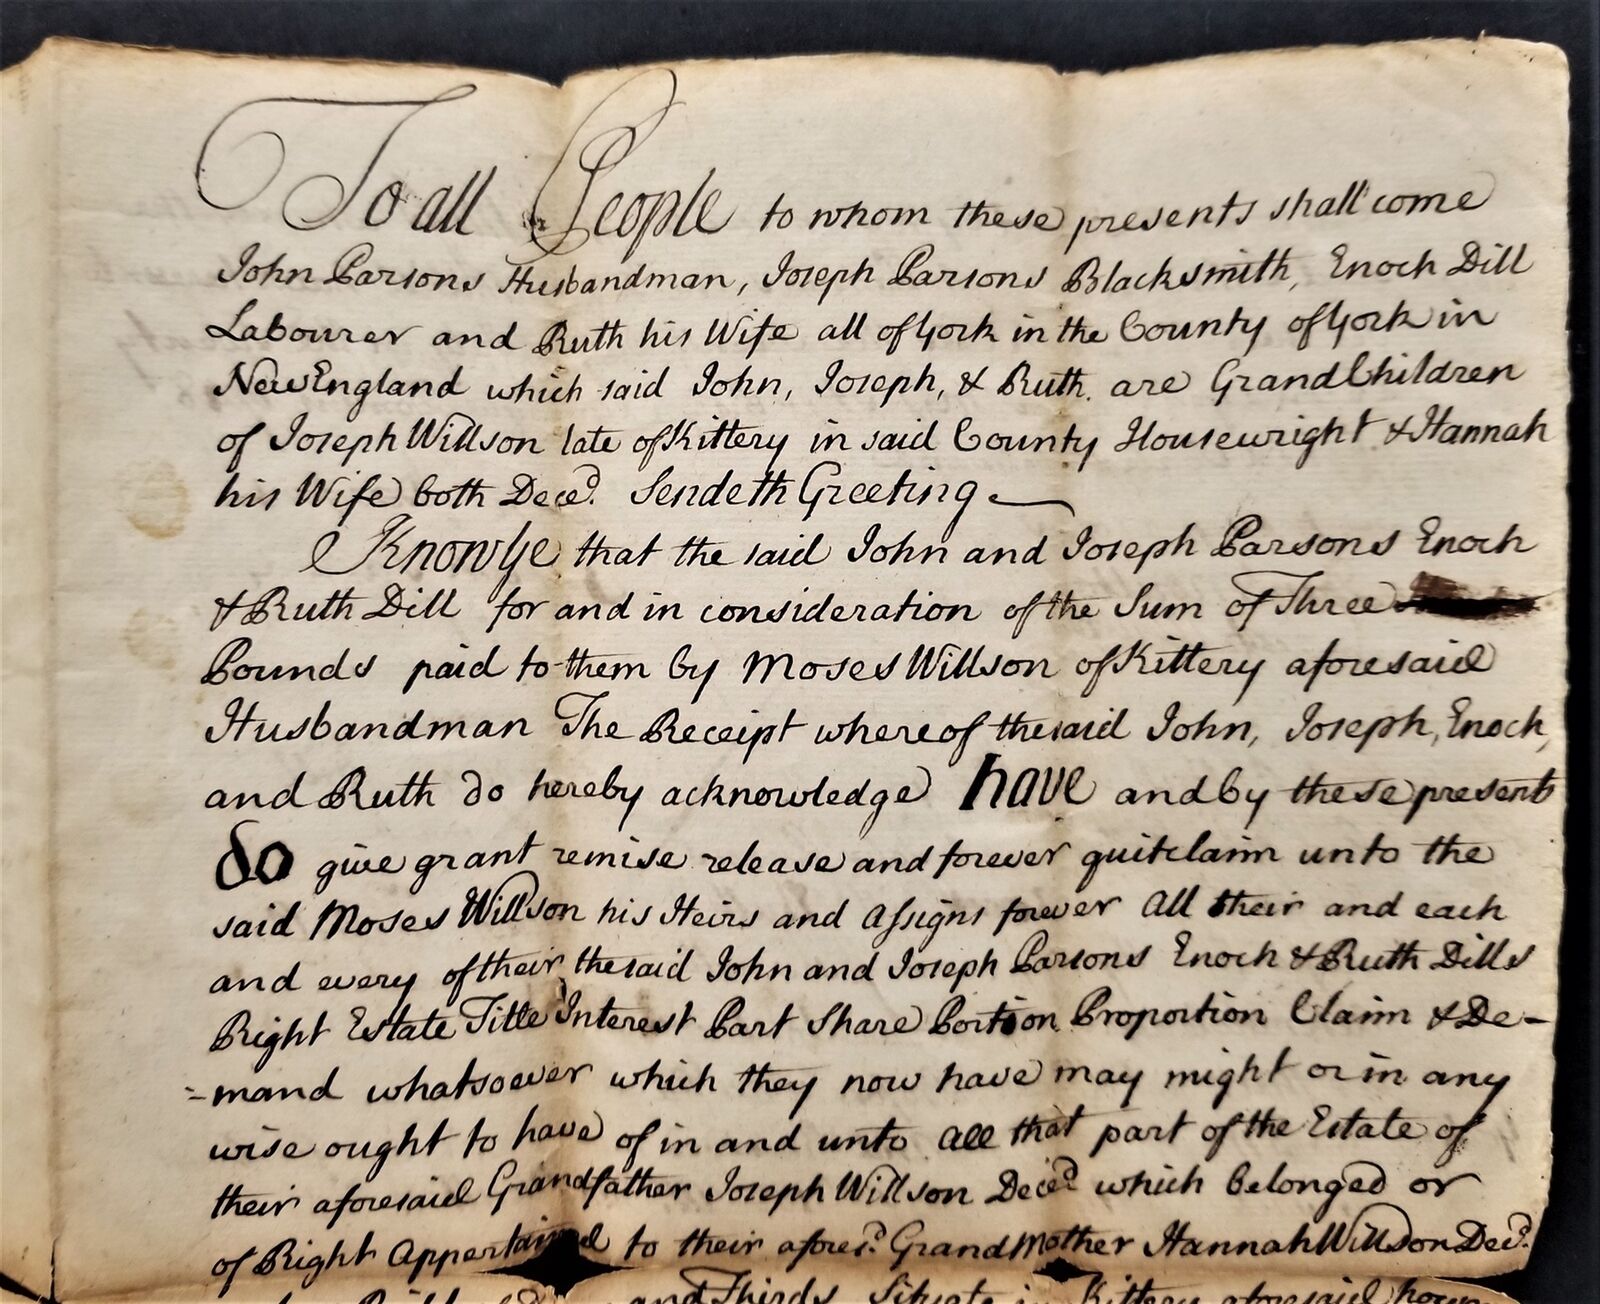 To all People to whom these presents shall come
John Parsons Husbandman, Joseph Parsons Blacksmith, Enoch Dill
Labourer and Ruth his Wife all of York in the County of York in
New England which said John, Joseph, & Ruth are GrandChildren
of Joseph Willson late of Kittery in said County Housewright & Hannah
his Wife both Deced. Sendeth Greeting
Know ye that the said John and Joseph Parsons Enoch
& Ruth Dill for and in consideration of the Sum of Three
Pounds paid to them by Moses Willson of Kittery aforesaid
Husbandman The Receipt whereof the said John, Joseph, Enoch,
and Ruth do hereby acknowledge have and by these presents
do give grant remise release and forever quitclaim unto the
said Moses Willson his Heirs and Assigns forever all their and each
and every of their the said John and Joseph Parsons Enoch & Ruth Dills
Right Estate Title Interest Part Share Portion Proportion Claim & De-
=mand whatsoever which they now have may might or in any
wise ought to have of in and unto all that part of the Estate of
their aforesaid Grandfather Joseph Willson Deced which belonged or
of Right Appertained to their afores.d GrandMother Hannah Willson Decd.
and Thirds Situate in Kittery aforesaid